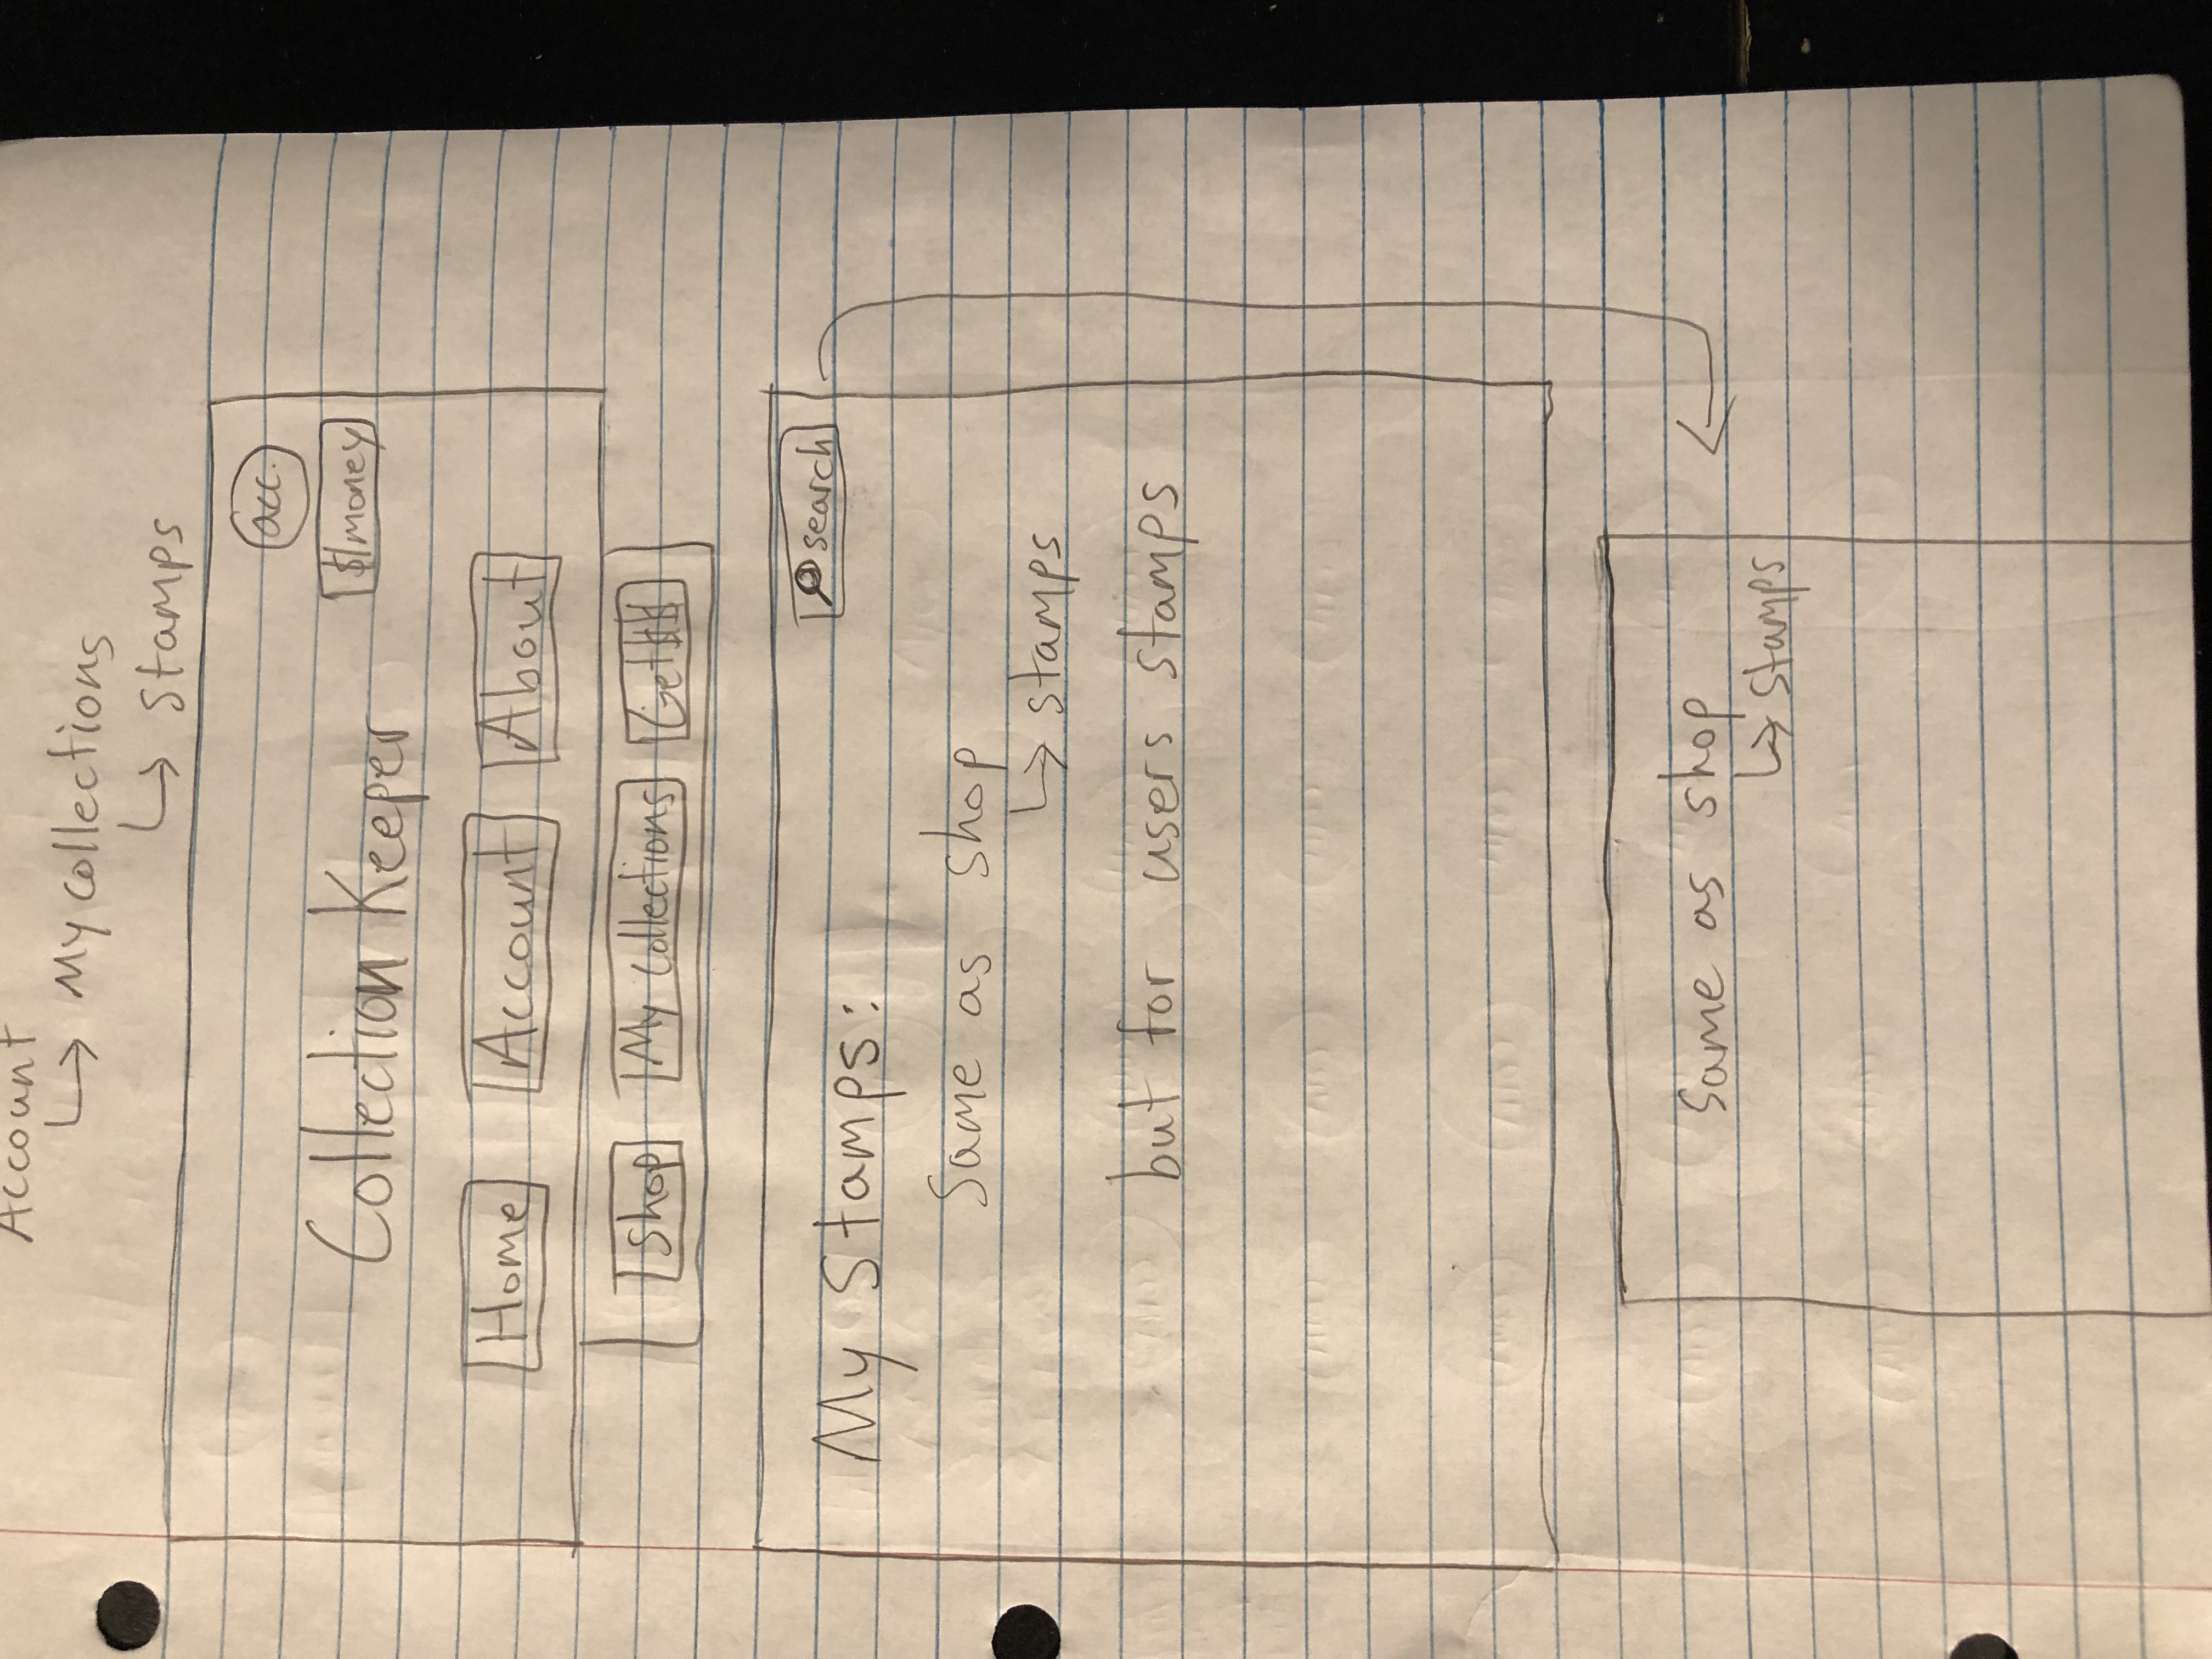 Account
↳ My collections
↳ Stamps
acc.
Collection Keeper
$/money
Home Account About
Shop My Collections Get $$
search
My Stamps:
Same as shop
↳ stamps
but for users stamps
Same as shop
↳ stamps